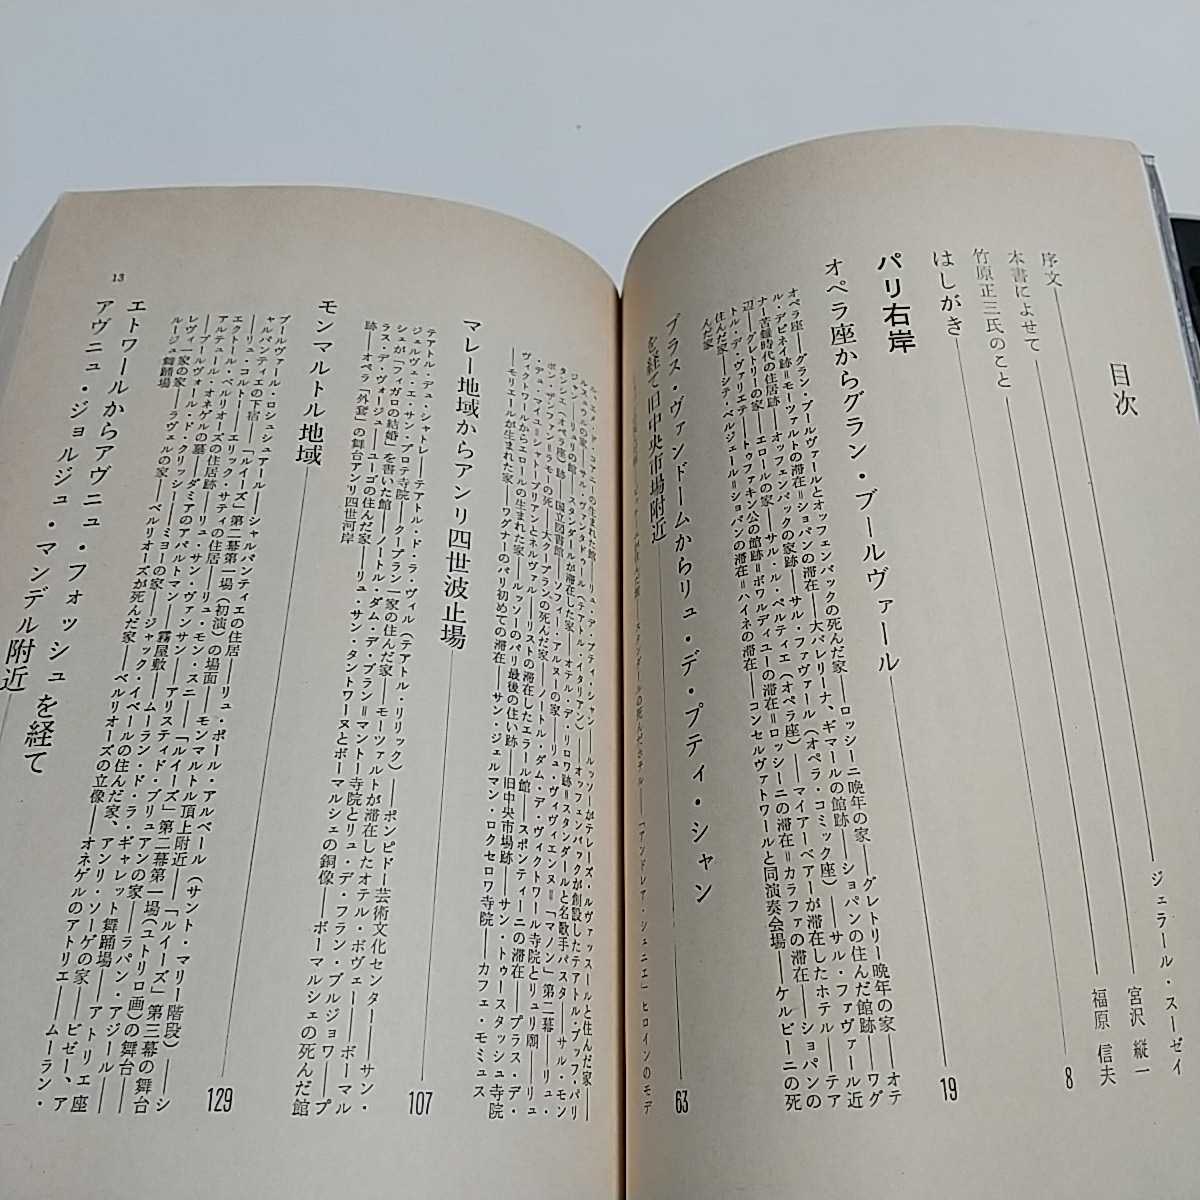 目次
序文 ジェラール・スーゼイ
本書によせて 宮沢 縦一
竹原正三氏のこと 福原 信夫
はしがき 8
パリ右岸
オペラ座からグラン・ブールヴァール 19
オペラ座——グラン・ブールヴァールとオッフェンバックの死んだ家——ロッシーニ晩年の家——グレトリー晩年の家——オテ
ル・デピネイ跡=モーツァルトの滞在=ショパンの滞在——大バレリーナ、ギマールの館跡——ショパンの住んだ館跡——ワグ
ナー苦難時代の住居跡——オッフェンバックの家跡——サル・ファヴァール（オペラ・コミック座）——サル・ファヴァール近
辺——グレトリーの家——エロールの家——サル・ル・ペルティエ（オペラ座）——マイアーベアーが滞在したホテル——テア
トル・デ・ヴァリエテ——トゥファキン公の館跡=ボワルディユーの滞在=ロッシーニの滞在=カラファの滞在——ショパンの
住んだ家——シテ・ベルジェール=ショパンの滞在=ハイネの滞在——コンセルヴァトワールと同演奏会場——ケルビーニの死
んだ家
プラス・ヴァンドームからリュ・デ・プティ・シャン
を経て旧中央市場附近 63
スタンダールの死んだホテル——「アンドレア・シェニエ」ヒロインのモデ
の生まれた館——リュ・デ・プティ・シャン——ルッソーがテレーズ・ルヴァッスールと住んだ家——
ジャン=リュリの館——スタンダールが滞在した家——オテル・デ・リロワ跡=スタンダールと名歌手パスタ——サル・モン
タンシエ（オペラ座）跡——国立図書館——ソフィー・アルヌーの家——リュ・ヴィヴィエンヌ=「マノン」第二幕——リュ・
ボン・ザンファン=ラモーの死——大クープランの死んだ家——ノートル・ダム・デ・ヴィクトワール寺院とリュリ廟——リュ
・デュ・マイユ=シャトーブリアンとネルヴァル——リストの滞在したエラール館——スポンティーニの滞在——プラス・デ・
ヴィクトワールからエロールの生まれた家——ルッソーのパリ最後の住い跡——旧中央市場跡——サン・トゥースタッシュ寺院
——モリエールが生まれた家——ワグナーのパリ初めての滞在——サン・ジェルマン・ロクセロワ寺院——カフェ・モミュス
マレー地域からアンリ四世波止場 107
テアトル・デュ・シャトレ——テアトル・ド・ラ・ヴィル（テアトル・リリック）——ポンピドー芸術文化センター——サン・
ジェルヴェ・エ・サン・プロテ寺院——クープラン一家の住んだ家——モーツァルトが滞在したオテル・ボヴェー——ボーマル
シェが「フィガロの結婚」を書いた館——ノートル・ダム・デ・ブラン=マントー寺院とリュ・デ・フラン・ブルジョワ——プ
ラス・デ・ヴォージュ——ユーゴの住んだ家——リュ・サン・タントワーヌとボーマルシェの銅像——ボーマルシェの死んだ館
跡——オペラ「外套」の舞台アンリ四世河岸
モンマルトル地域 129
ブールヴァール・ロシュシュアール——シャルパンティエの住居——リュ・ポール・アルベール（サント・マリー階段）——シ
ャルパンティエの下宿——「ルイーズ」第二幕第一場（初演）の場面——モンマルトル頂上附近——「ルイーズ」第三幕の舞台
——リュ・コルトー——エリック・サティの住居——リュ・モン・スニ——「ルイーズ」第二幕第一場（ユトリロ画）の舞台——
エクトール・ベルリオーズの住居跡——リュ・サン・ヴァンサン——アリスティド・ブリュアンの家——ラパン・アジール——
アルテュール・オネゲルの墓——ダミアのアパルトマン——霧屋敷——ムーラン・ド・ラ・ギャレット舞踊場——アトリエ座
——ブールヴォール・ド・クリッシー——ミヨーの家——ジャック・イベールの住んだ家、アンリ・ソーゲの家——ビゼー、ア
レヴィ一家の家——ラヴェルの家——ベルリオーズが死んだ家——ベルリオーズの立像——オネゲルのアトリエ——ムーラン・
ルージュ舞踊場
エトワールからアヴニュ・フォッシュを経て
アヴニュ・ジョルジュ・マンデル附近
13